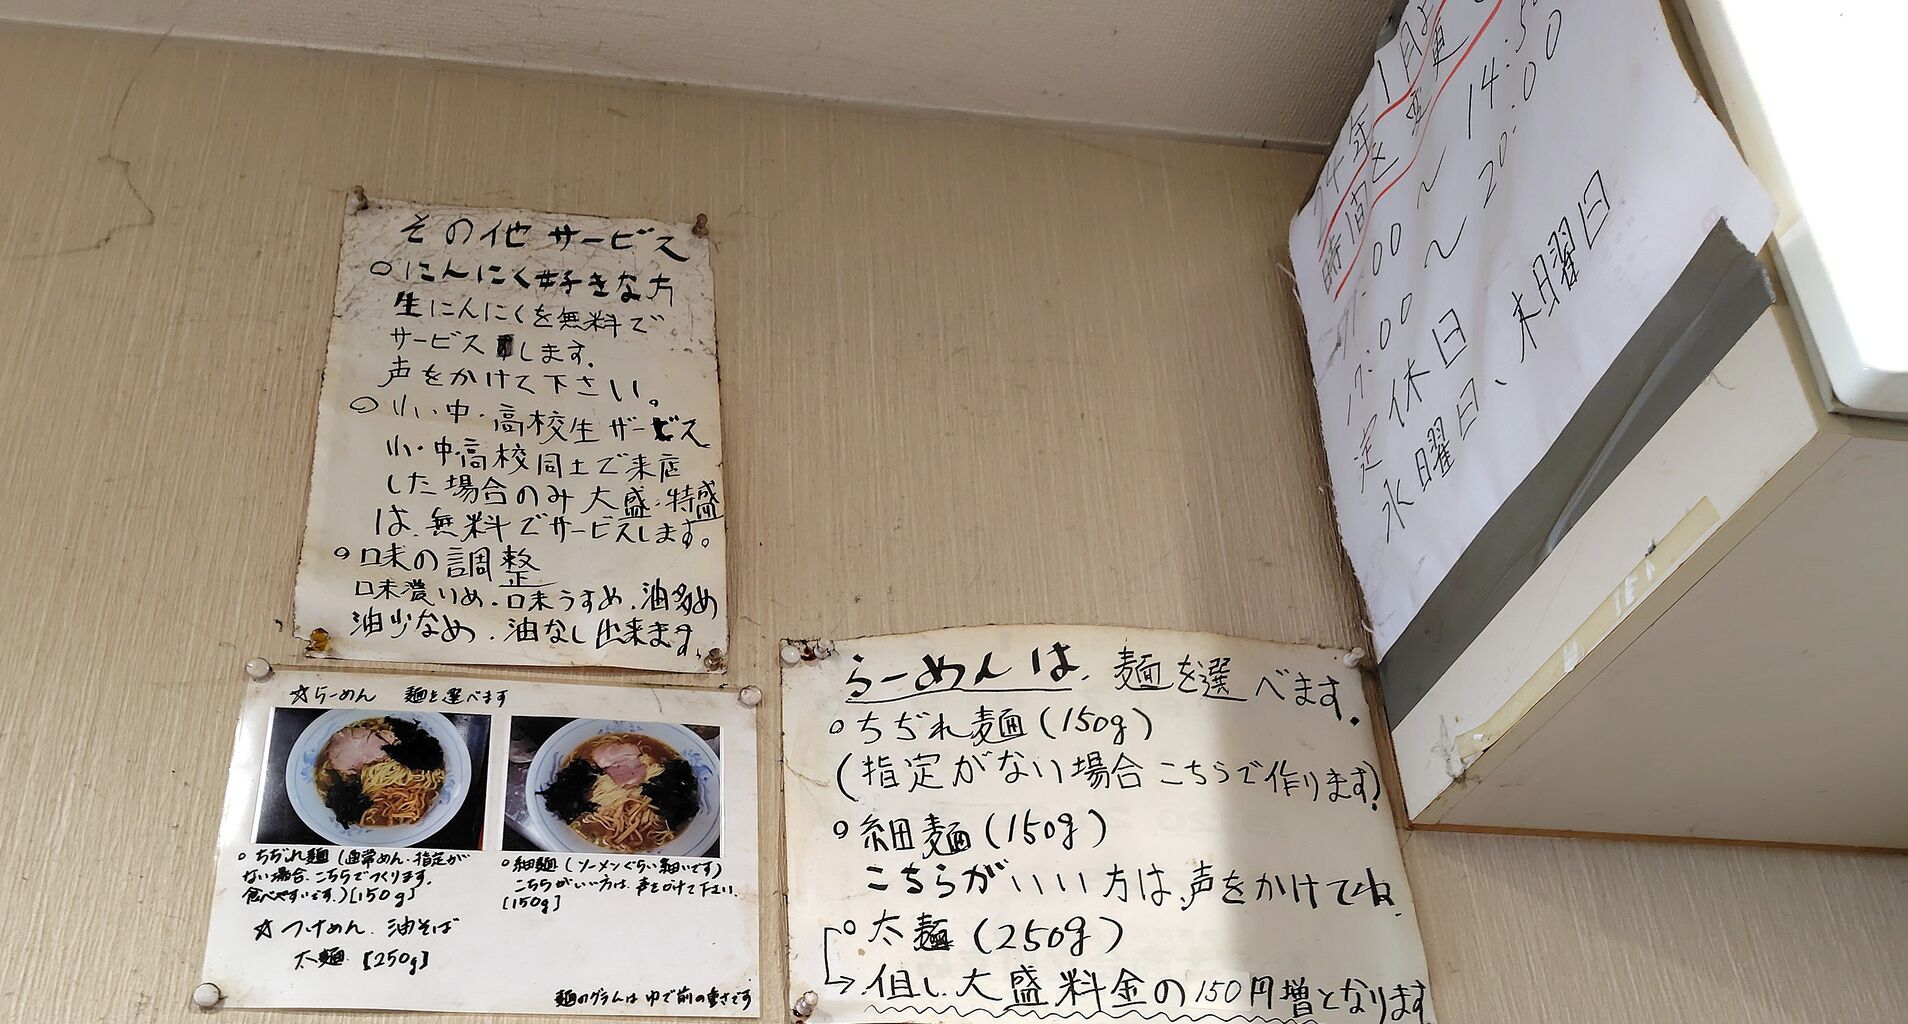 その他サービス
○にんにく好きな方
生にんにくを無料で
サービスします。
声をかけて下さい。
○小・中・高校生サービス
小・中・高校同士で来店
した場合のみ大盛・特盛
は、無料でサービスします。
○味の調整
味濃いめ・味うすめ、油多め
油少なめ、油なし出来ます
☆らーめん 麺を選べます
○ちぢれ麺(通常めん・指定が
ない場合、こちらでつくります。
食べやすいです。)[150g]
○細麺(ソーメンぐらい細いです)
こちらがいい方は、声をかけて下さい。
[150g]
☆つけめん、油そば
太麺 [250g]
麺のグラムはゆで前の重さです
らーめんは、麺を選べます。
○ちぢれ麺(150g)
(指定がない場合こちらで作ります)
○細麺(150g)
こちらがいい方は、声をかけてね
○太麺(250g)
→但し、大盛料金の150円増となります
24年1月より
時間を変更
:00～14:
17:00～20:00
定休日
水曜日、木曜日